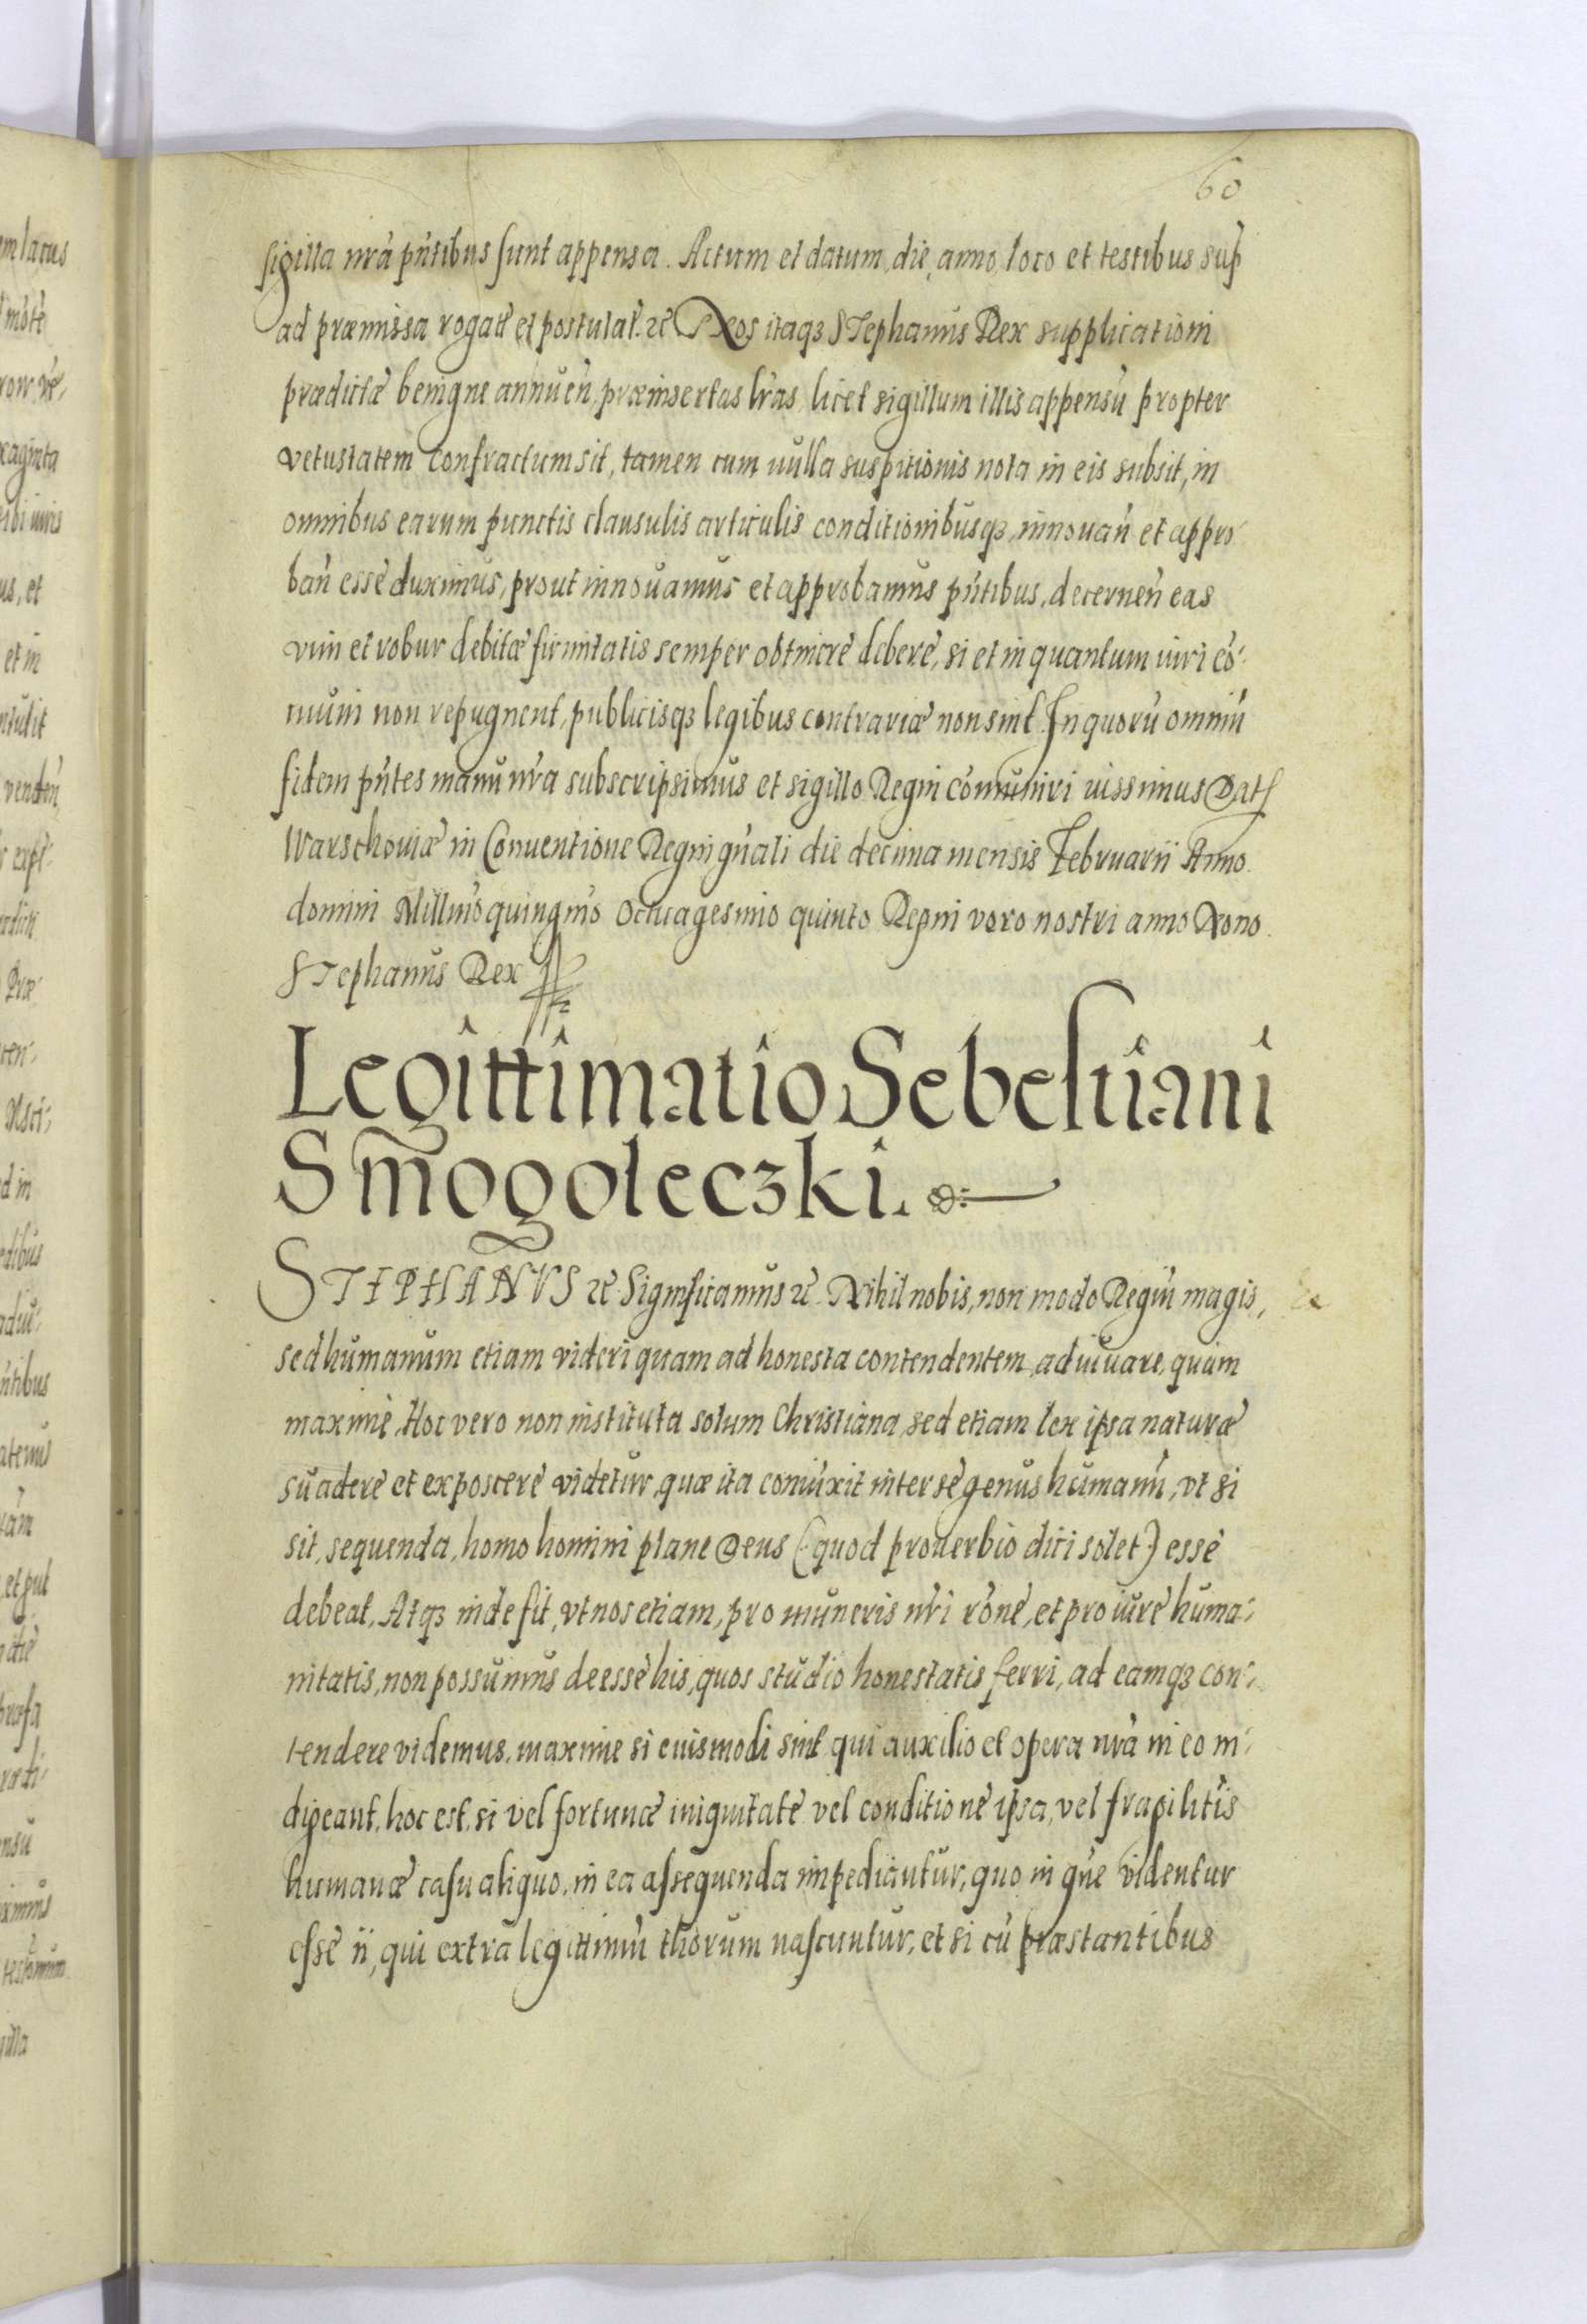 60
sigilla nra pñtibus sunt appensa. Actum et datum, die, anno, loco et testibus sup
ad præmissa rogat̃ et postulat̃. &c̃ Nos itaqꝫ STephanus Rex supplicationi
prædictæ benigne annueñ, præinsertas lr̃as, licet sigillum illis appensũ propter
vetustatem confractum sit, tamen cum nulla suspitionis nota in eis subsit, in
omnibus earum punctis clausulis articulis conditionibusqꝫ, innouañ et appro-
bañ esse duximus, prout innouamus et approbamus pñtibus, decerneñ eas
vim et robur debitæ firmitatis semper obtinere debere, si et in quantum iuri cõ-
muni non repugnent, publicisqꝫ legibus contrariæ non sint. In quorũ omniũ
fidem pñtes manu nr̃a subscripsimus et sigillo Regni cõmuniri iussimus Dat
Warschouiæ in Conuentione Regni gñali die decima mensis Februarii Anno
domini Millmõ quingmõ Octuagesimo quinto Regni vero nostri anno Nono.
STephanus Rex
Legittimatio Sebestiani
Smogoleczki.
STEPHANVS &c̃ Significamus &c̃. Nihil nobis, non modo Regiũ magis,
sed humanum etiam videri quam ad honesta contendentem, adiuuare, quam
maxime. Hoc vero non instituta solum Christiana, sed etiam lex ipsa naturæ
suadere et exposcere videtur, quæ ita coniũxit inter se genus humanũ, vt si
sit, sequenda, homo homini plane Deus (quod prouerbio dici solet) esse
debeat. Atqꝫ inde fit, vt nos etiam, pro muneris nr̃i rõne, et pro iure huma-
nitatis, non possumus deesse his, quos studio honestatis ferri, ad eamqꝫ con-
tendere videmus, maxime si eiusmodi sint qui auxilio et opera nr̃a in eo in-
digeant, hoc est, si vel fortunæ iniquitate vel conditione ipsa, vel fragilitis
humanæ casu aliquo, in ea assequenda impediantur, quo in gñe videntur
esse ii, qui extra legittimũ thorum nascuntur, et si cũ præstantibus